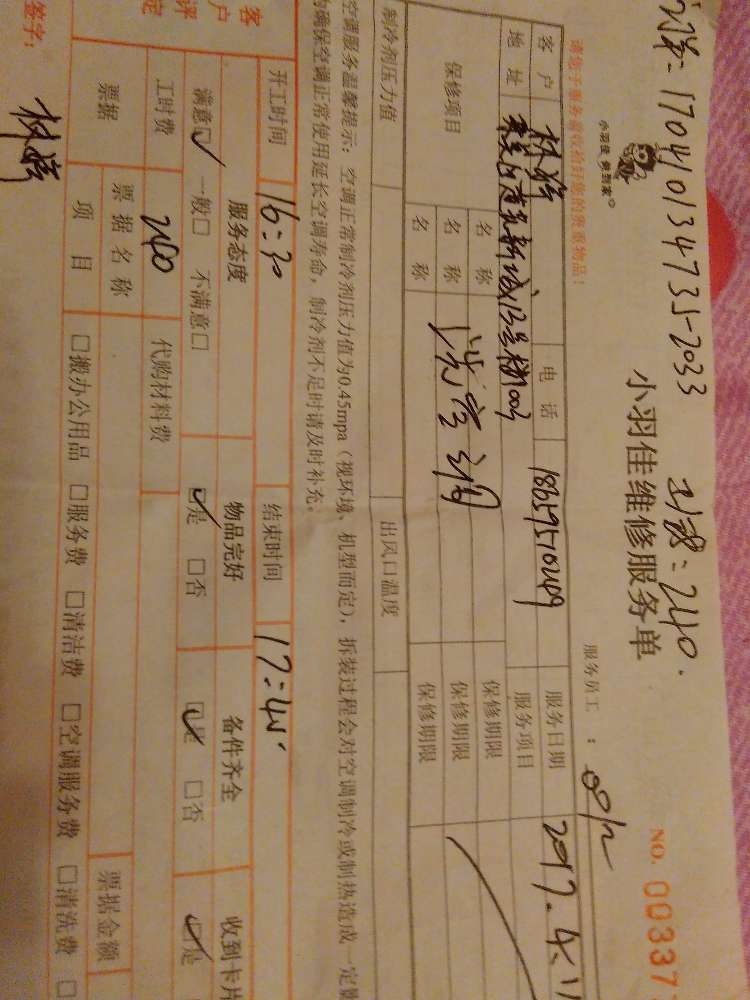 17040134735-2033 240.
小羽佳 爱到家
小羽佳维修服务单
NO. 00337
请您于服务前收拾好您的贵重物品!
服务员工:
客户 林 电话 18659510249 服务日期 2017.4.1
地址 新城13号楼1003 服务项目
保修项目 名称 保修期限
名称 洗空调 保修期限
名称 保修期限
制冷剂压力值 出风口温度
空调服务温馨提示:空调正常制冷剂压力值为0.45mpa(视环境、机型而定),拆装过程会对空调制冷或制热造成一定
确保空调正常使用延长空调寿命,制冷剂不足时请及时补充。
开工时间 16:30 结束时间 17:45.
客户评定 服务态度 物品完好 备件齐全 收到卡片
满意□ 一般□ 不满意□ □是 □否 □是 □否 □是
工时费 240 代购材料费
票据 票据名称 票据金额
项目 □搬办公用品 □服务费 □清洁费 □空调服务费 □清洗费 □
签字: 林